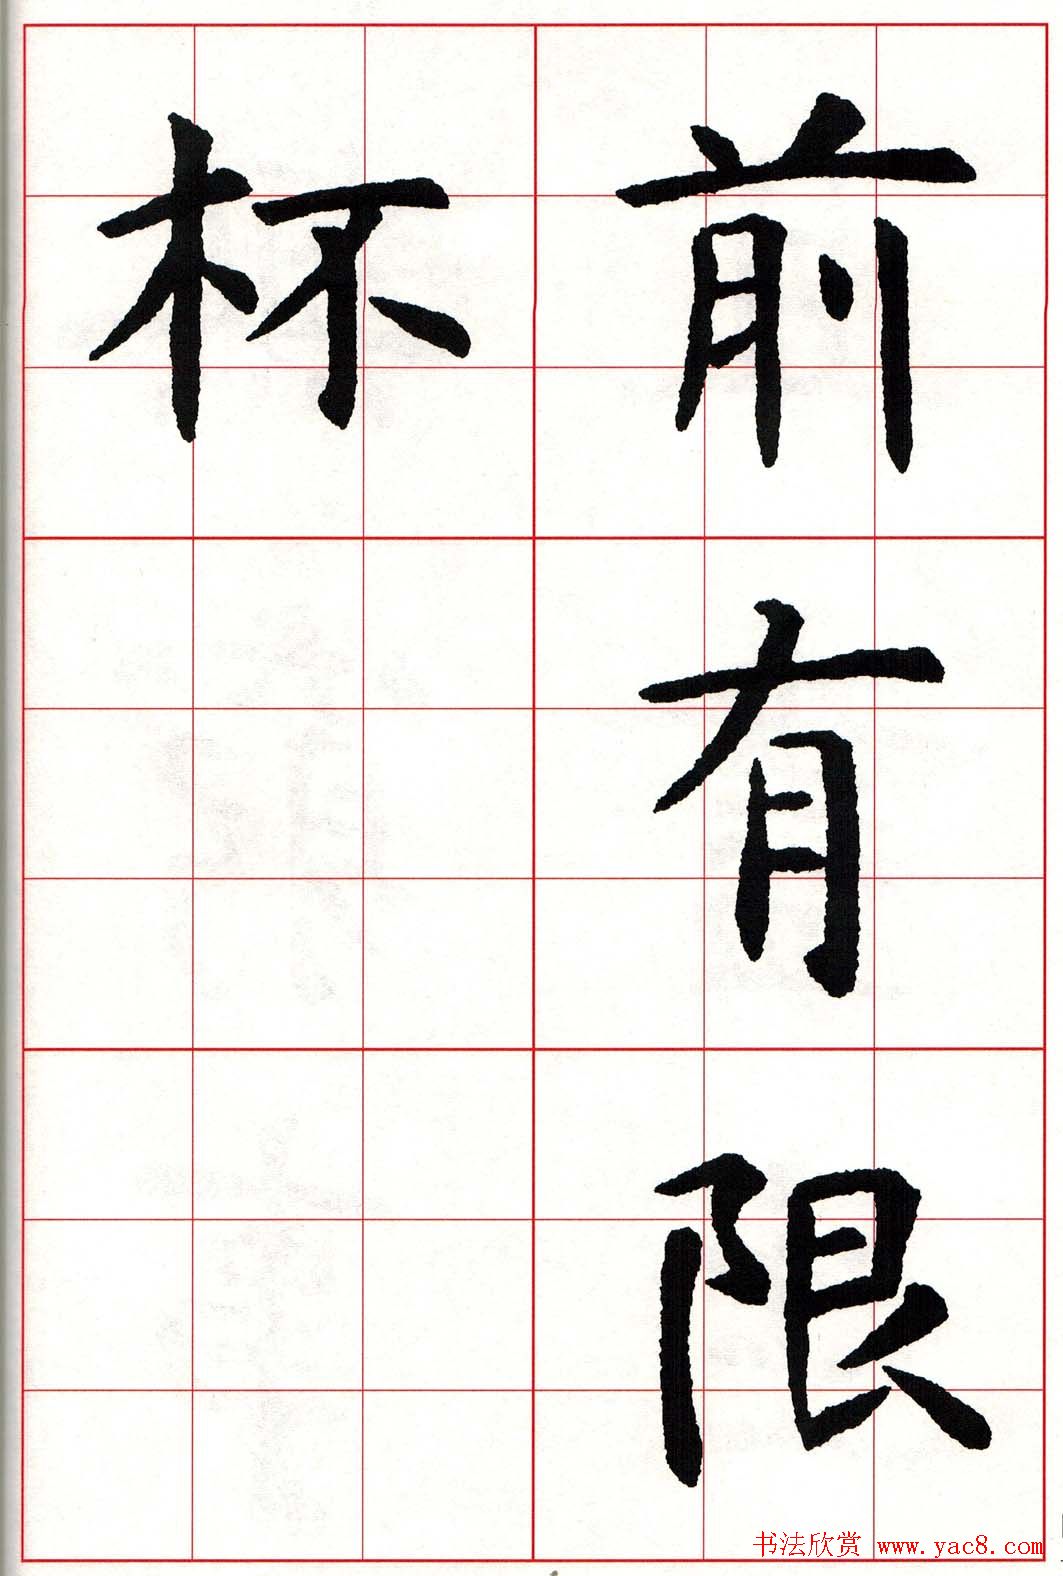 前有限
杯
书法欣赏 www.yac8.com